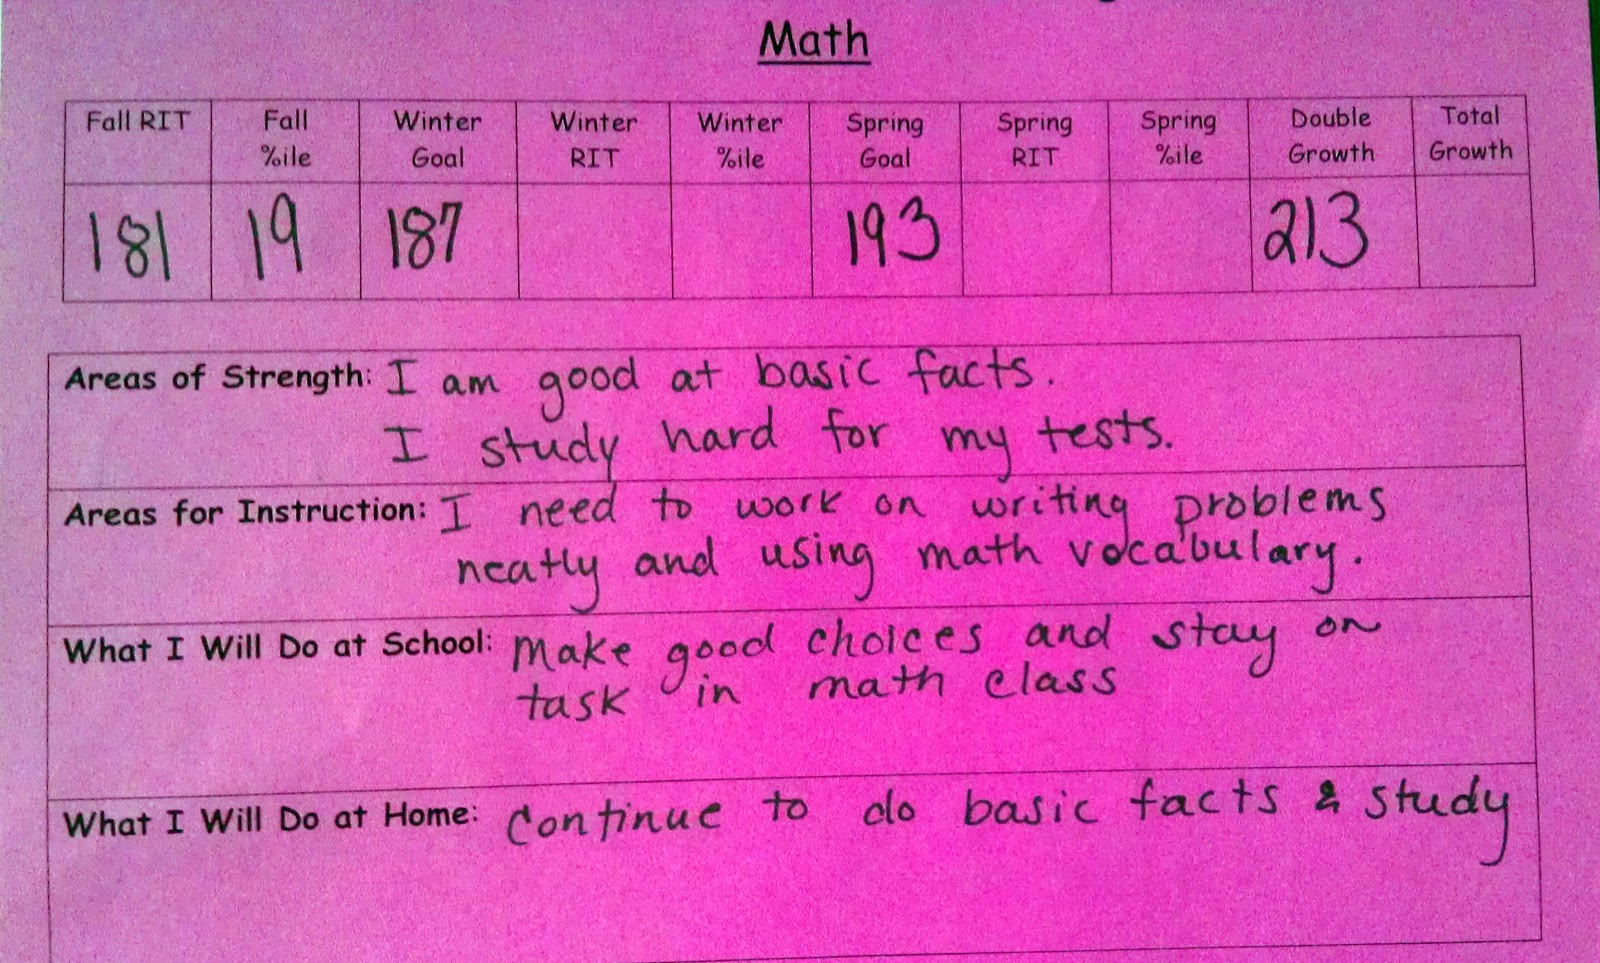 Math
Fall RIT Fall %ile Winter Goal Winter RIT Winter %ile Spring Goal Spring RIT Spring %ile Double Growth Total Growth
181 19 187 193 213
Areas of Strength: I am good at basic facts.
I study hard for my tests.
Areas for Instruction: I need to work on writing problems
neatly and using math vocabulary.
What I Will Do at School: Make good choices and stay on
task in math class
What I Will Do at Home: Continue to do basic facts & study